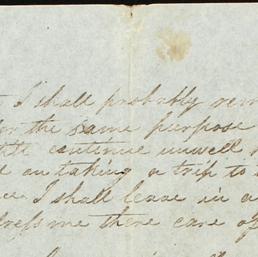 I shall probably
the same purpose
continue unwell
on taking a trip to
I shall leave in a
me there care of